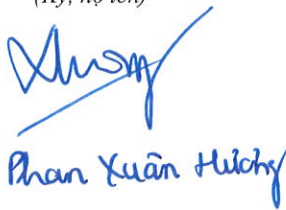 (Ký, họ tên)
Phan Xuân Hương